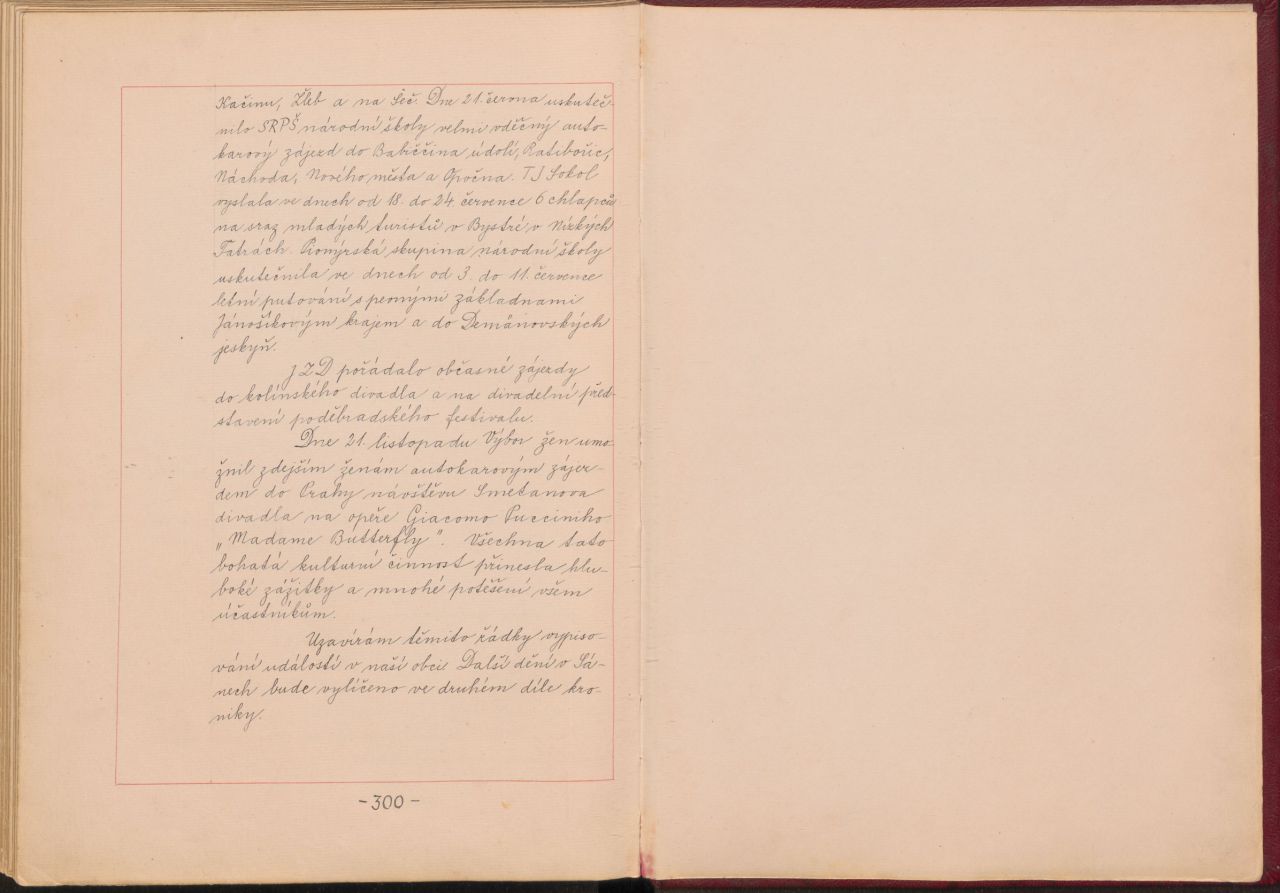 Kačinu, Žleb a na Seč. Dne 21. června uskuteč-
nilo SRPŠ národní školy velmi vděčný auto-
karový zájezd do Babiččina údolí, Ratibořic,
Náchoda, Nového města a Opočna. TJ Sokol
vyslala ve dnech od 18. do 24. července 6 chlapců
na sraz mladých turistů v Bystré v Nízkých
Tatrách. Pionýrská skupina národní školy
uskutečnila ve dnech od 3. do 11. července
letní putování s pevnými základnami
Jánošíkovým krajem a do Demänovských
jeskyň.
JZD pořádalo občasné zájezdy
do kolínského divadla a na divadelní před-
stavení poděbradského festivalu.
Dne 21. listopadu Výbor žen umo-
žnil zdejším ženám autokarovým zájez-
dem do Prahy návštěvu Smetanova
divadla na opeře Giacomo Pucciniho
„Madame Butterfly". Všechna tato
bohatá kulturní činnost přinesla hlu-
boké zážitky a mnohé potěšení všem
účastníkům.
Uzavírám těmito řádky vypiso-
vání událostí v naší obci. Další dění v Sá-
nech bude vylíčeno ve druhém díle kro-
niky.
- 300 -